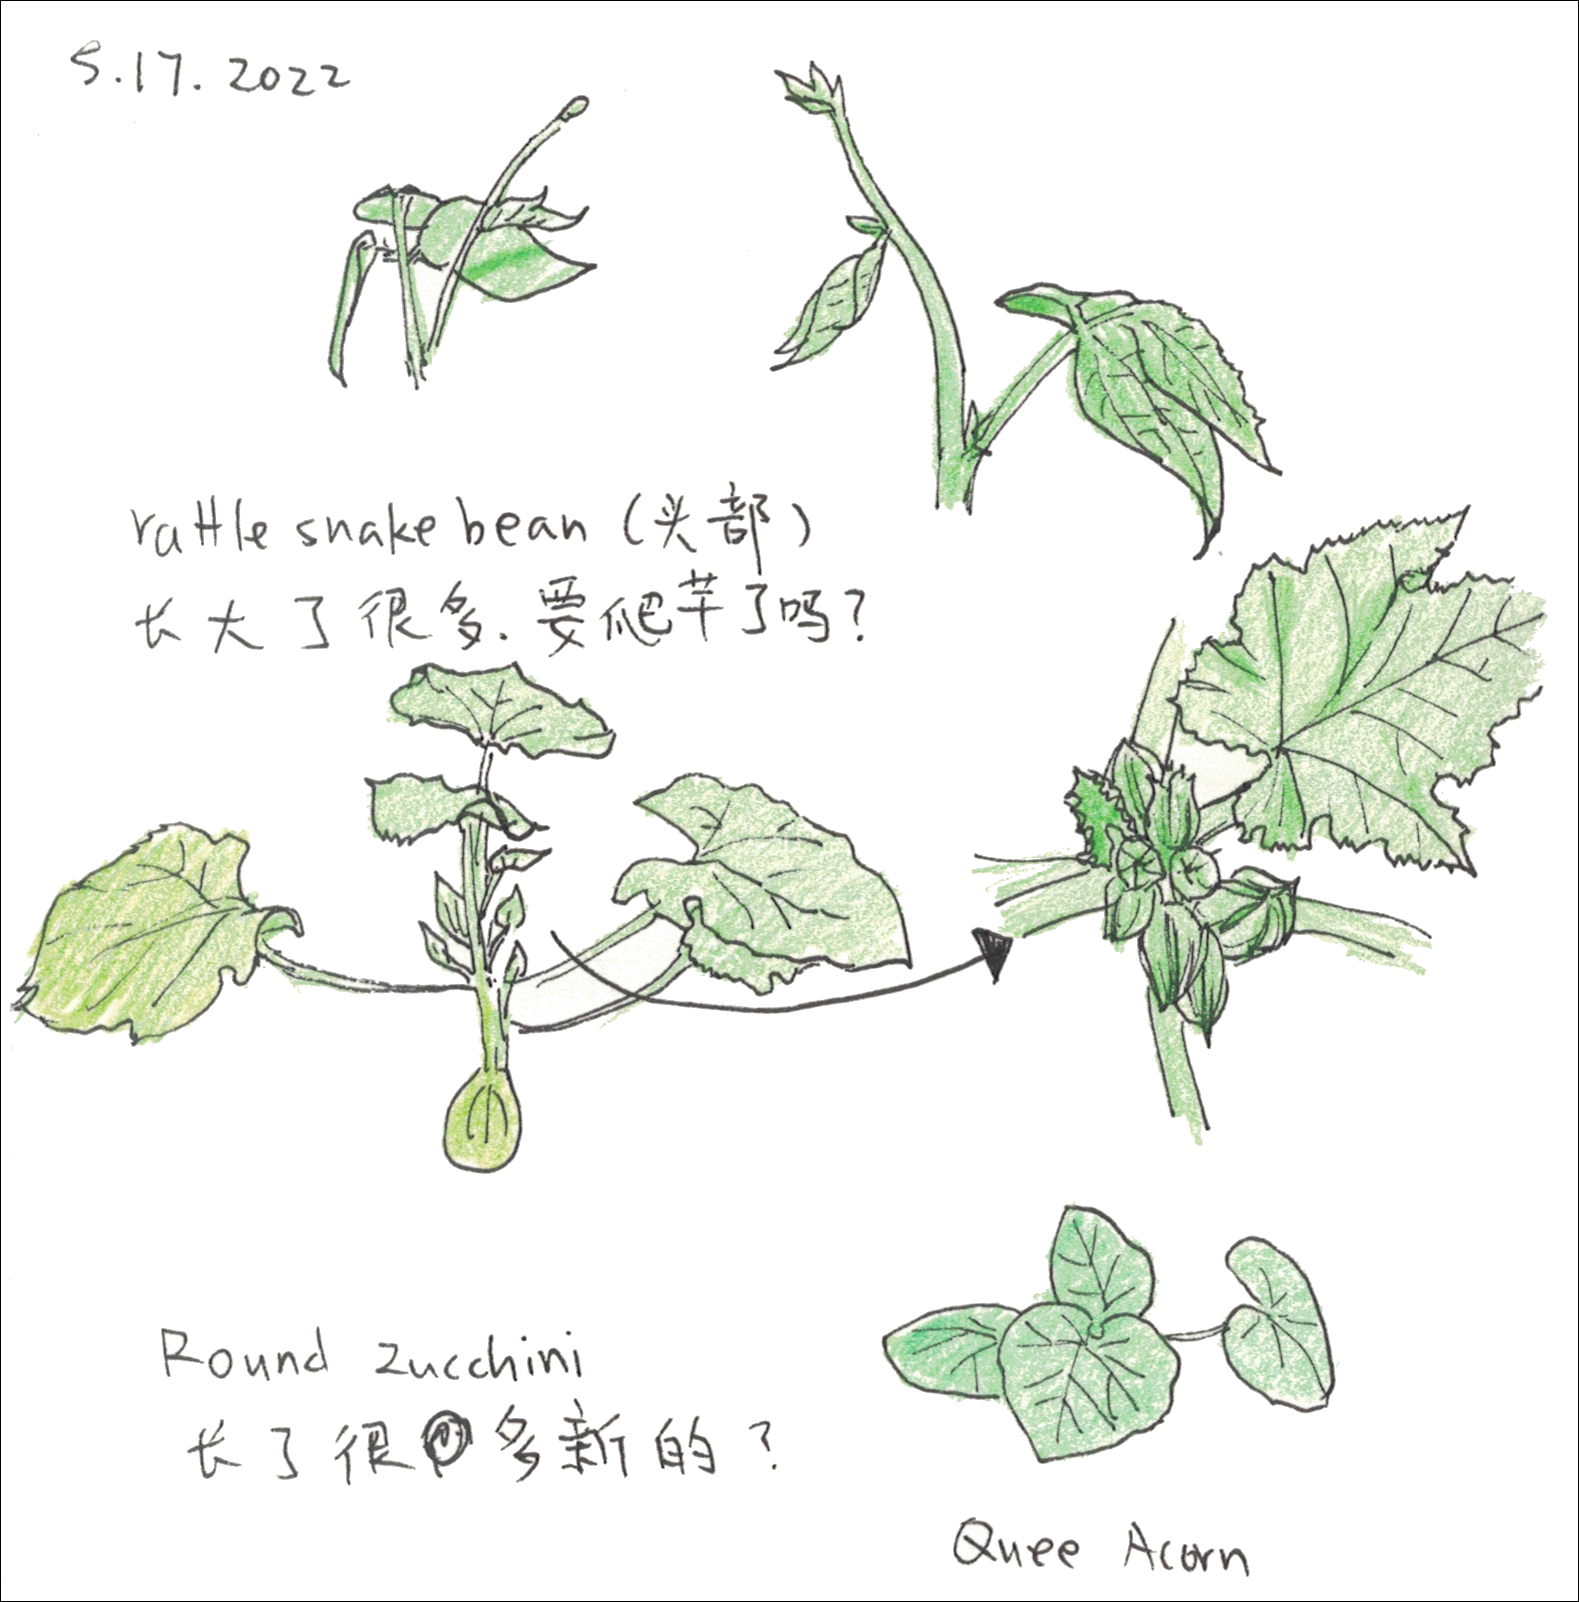 5.17.2022
rattle snake bean (头部)
长大了很多.要爬芊了吗?
Round zucchini
长了很多新的?
Quee Acorn